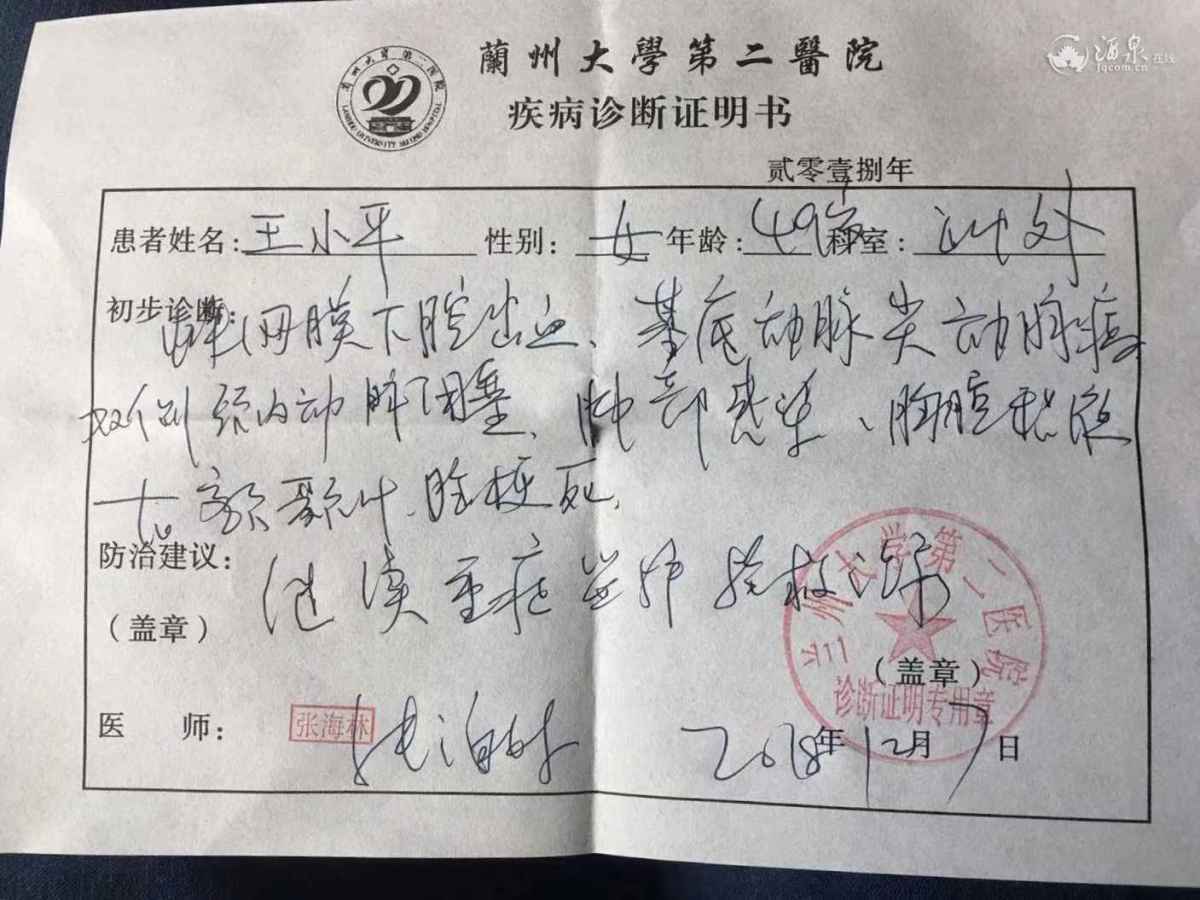 酒泉在线
jqcom.cn
蘭州大學第二醫院
LANZHOU UNIVERSITY SECOND HOSPITAL
疾病诊断证明书
贰零壹捌年
患者姓名:王小平 性别:女 年龄:49岁 科室:神外
初步诊断:
蛛网膜下腔出血、基底动脉尖动脉瘤
双侧颈内动脉闭塞、肺部感染、胸腔积液
左额颞叶、脑梗死
防治建议:
继续重症监护抢救治疗
(盖章)
兰州大学第二医院
(盖章)
诊断证明专用章
医 师: 张海林
2018年12月7日